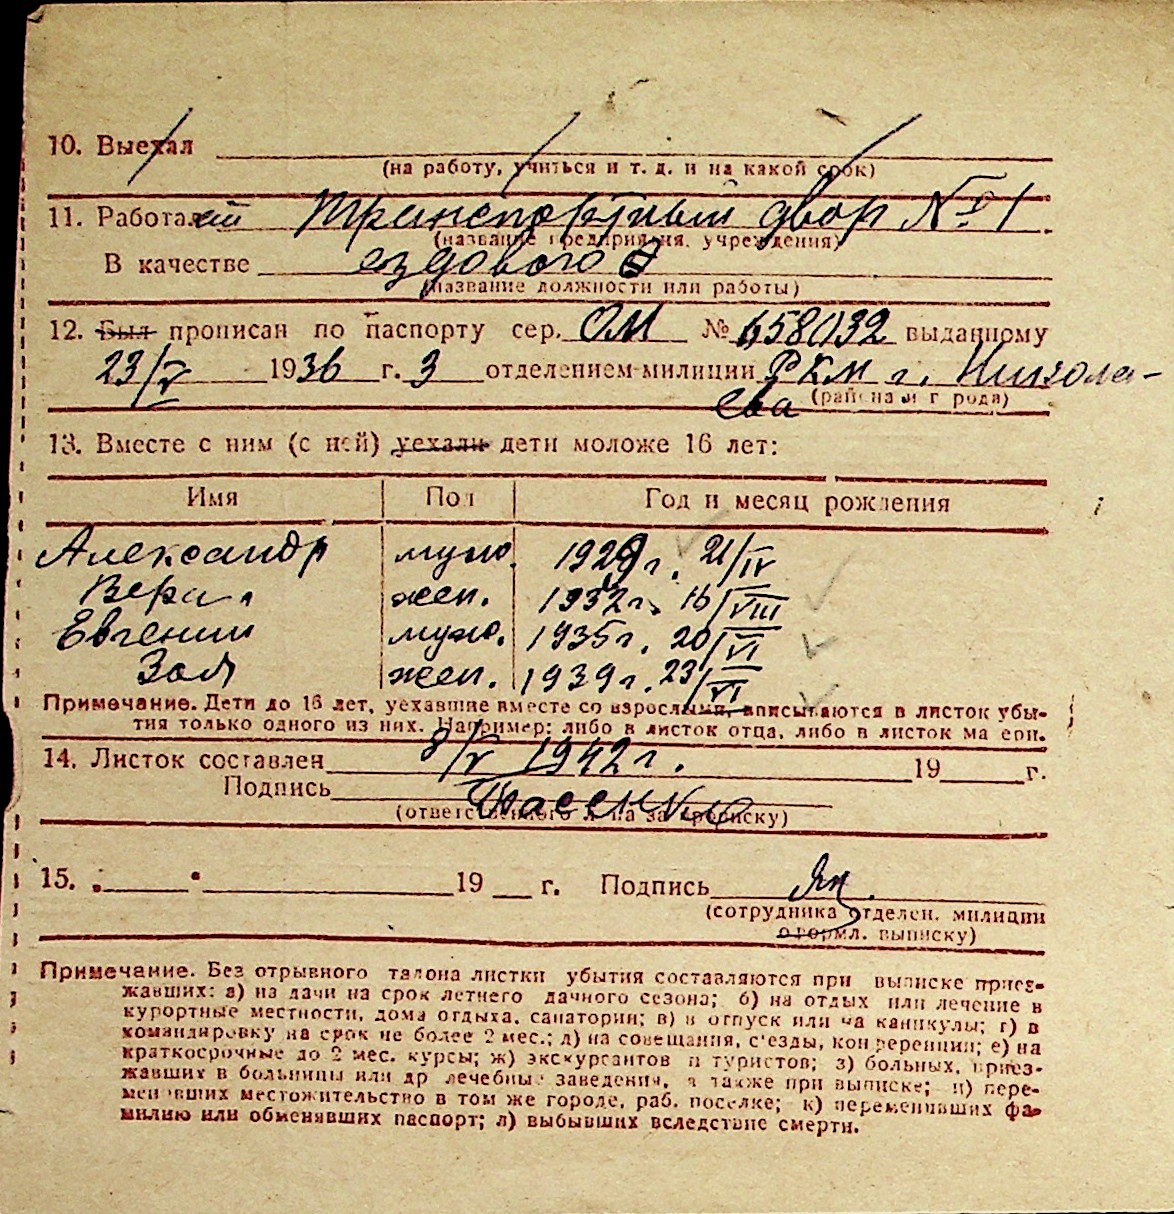 10. Выехал
(на работу, учиться и т. д. и на какой срок)
11. Работает Транспортный двор № 1
(название предприятия, учреждения)
В качестве ездового
(название должности или работы)
12. Был прописан по паспорту сер. ОМ № 658032 выданному
23/V 1936 г. 3 отделением милиции РКМ г. Никола-
ева (района и города)
13. Вместе с ним (с ней) уехали дети моложе 16 лет:
Имя Пол Год и месяц рождения
Александр муж. 1929 г. 21/IV
Вера жен. 1932 г. 16/VIII
Евгений муж. 1935 г. 20/VI
Зоя жен. 1939 г. 23/VI
Примечание. Дети до 16 лет, уехавшие вместе со взрослыми, вписываются в листок убы-
тия только одного из них. Например: либо в листок отца, либо в листок матери.
14. Листок составлен 8/V 1942 г. 19 г.
Подпись
(ответственного лица за прописку)
15. „ " 19 г. Подпись
(сотрудника отделен. милиции
оформл. выписку)
Примечание. Без отрывного талона листки убытия составляются при выписке приез-
жавших: а) на дачи на срок летнего дачного сезона; б) на отдых или лечение в
курортные местности, дома отдыха, санатории; в) в отпуск или на каникулы; г) в
командировку на срок не более 2 мес.; д) на совещания, с'езды, конференции; е) на
краткосрочные до 2 мес. курсы; ж) экскурсантов и туристов; з) больных, приез-
жавших в больницы или др лечебные заведения, а также при выписке; и) пере-
менивших местожительство в том же городе, раб. поселке; к) переменивших фа-
милию или обменявших паспорт; л) выбывших вследствие смерти.